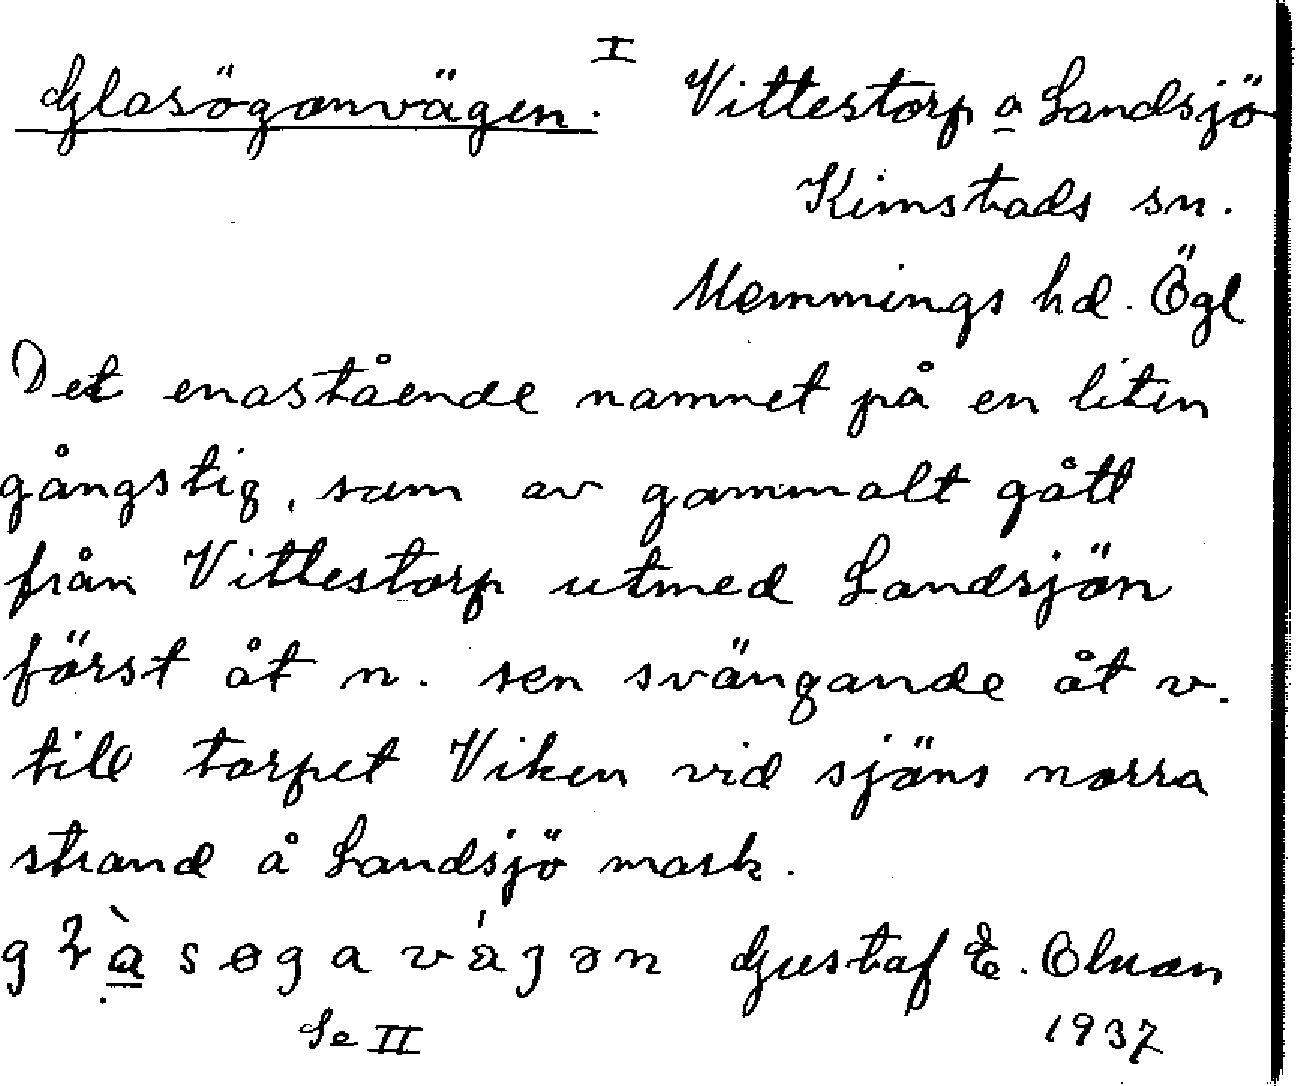 I
Glasöganvägen. Vittestorp o Landsjö
Kimstads sn.
Memmings hd. Ögl
Det enastående namnet på en liten
gångstig, som av gammalt gått
från Vittestorp utmed Landsjön
först åt n. sen svängande åt v.
till torpet Viken vid sjöns norra
strand å Landsjö mark.
Gustaf E. Olson
Se II 1937